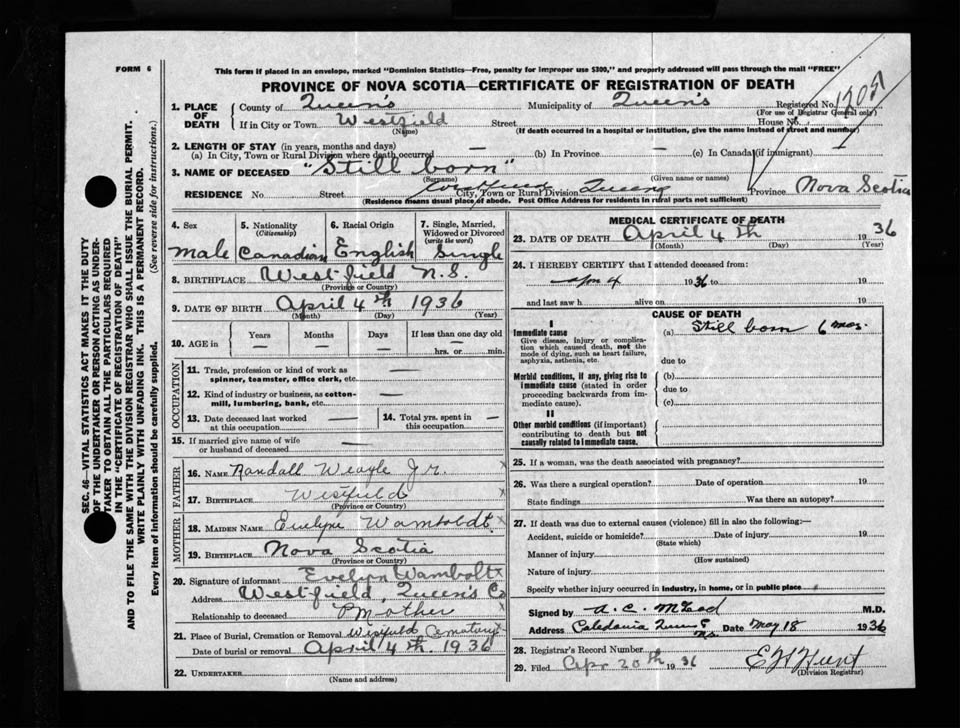 FORM 6
This form if placed in an envelope, marked "Dominion Statistics—Free, penalty for improper use $300," and properly addressed will pass through the mail "FREE"
PROVINCE OF NOVA SCOTIA—CERTIFICATE OF REGISTRATION OF DEATH
1. PLACE OF DEATH
County of Queen's Municipality of Queen's Registered No.
(For use of Registrar General only)
If in City or Town Westfield Street House No.
(Name) (If death occurred in a hospital or institution, give the name instead of street and number)
2. LENGTH OF STAY (in years, months and days)
(a) In City, Town or Rural Division where death occurred — (b) In Province — (c) In Canada (if immigrant)
3. NAME OF DECEASED "Still born"
(Surname) (Given name or names)
RESIDENCE No. Street Westfield City, Town or Rural Division Queens Province Nova Scotia
(Residence means usual place of abode. Post Office Address for residents in rural parts not sufficient)
SEC. 46—VITAL STATISTICS ACT MAKES IT THE DUTY
OF THE UNDERTAKER OR PERSON ACTING AS UNDER-
TAKER TO OBTAIN ALL THE PARTICULARS REQUIRED
IN THE "CERTIFICATE OF REGISTRATION OF DEATH"
AND TO FILE THE SAME WITH THE DIVISION REGISTRAR WHO SHALL ISSUE THE BURIAL PERMIT.
WRITE PLAINLY WITH UNFADING INK. THIS IS A PERMANENT RECORD.
Every item of information should be carefully supplied. (See reverse side for instructions.)
4. Sex 5. Nationality 6. Racial Origin 7. Single, Married,
(Citizenship) Widowed or Divorced
(write the word)
Male Canadian English Single
8. BIRTHPLACE Westfield N.S.
(Province or Country)
9. DATE OF BIRTH April 4th 1936
(Month) (Day) (Year)
10. AGE in Years Months Days If less than one day old
— — — — hrs. or min.
OCCUPATION
11. Trade, profession or kind of work as —
spinner, teamster, office clerk, etc.
12. Kind of industry or business, as cotton- —
mill, lumbering, bank, etc.
13. Date deceased last worked — 14. Total yrs. spent in —
at this occupation this occupation
15. If married give name of wife —
or husband of deceased
FATHER
16. NAME Randall Weagle Jr. x
17. BIRTHPLACE Westfield x
(Province or Country)
MOTHER
18. MAIDEN NAME Evelyn Wamboldt x
19. BIRTHPLACE Nova Scotia
(Province or Country)
20. Signature of informant Evelyn Wambolt x
Address Westfield, Queen's Co
Relationship to deceased Mother x
21. Place of Burial, Cremation or Removal Westfield Cemetery x
Date of burial or removal April 4th. 1936
22. UNDERTAKER
(Name and address)
MEDICAL CERTIFICATE OF DEATH
23. DATE OF DEATH April 4th 1936
(Month) (Day) (Year)
24. I HEREBY CERTIFY that I attended deceased from:
Apr 4 1936 to 19
and last saw h alive on 19
CAUSE OF DEATH
I
Immediate cause (a) Still born 6 mos.
Give disease, injury or complica-
tion which caused death, not the
mode of dying, such as heart failure,
asphyxia, asthenia, etc. due to
Morbid conditions, if any, giving rise to (b)
immediate cause (stated in order due to
proceeding backwards from im- (c)
mediate cause).
II
Other morbid conditions (if important)
contributing to death but not
causally related to immediate cause.
25. If a woman, was the death associated with pregnancy?
26. Was there a surgical operation? Date of operation 19
State findings Was there an autopsy?
27. If death was due to external causes (violence) fill in also the following:—
Accident, suicide or homicide? Date of injury 19
(State which)
Manner of injury
(How sustained)
Nature of injury
Specify whether injury occurred in industry, in home, or in public place
Signed by A. C. McLeod M.D.
Address Caledonia Queens N.S. Date May 18 1936
28. Registrar's Record Number
29. Filed Apr 20th 1936 E H Hunt
(Division Registrar)